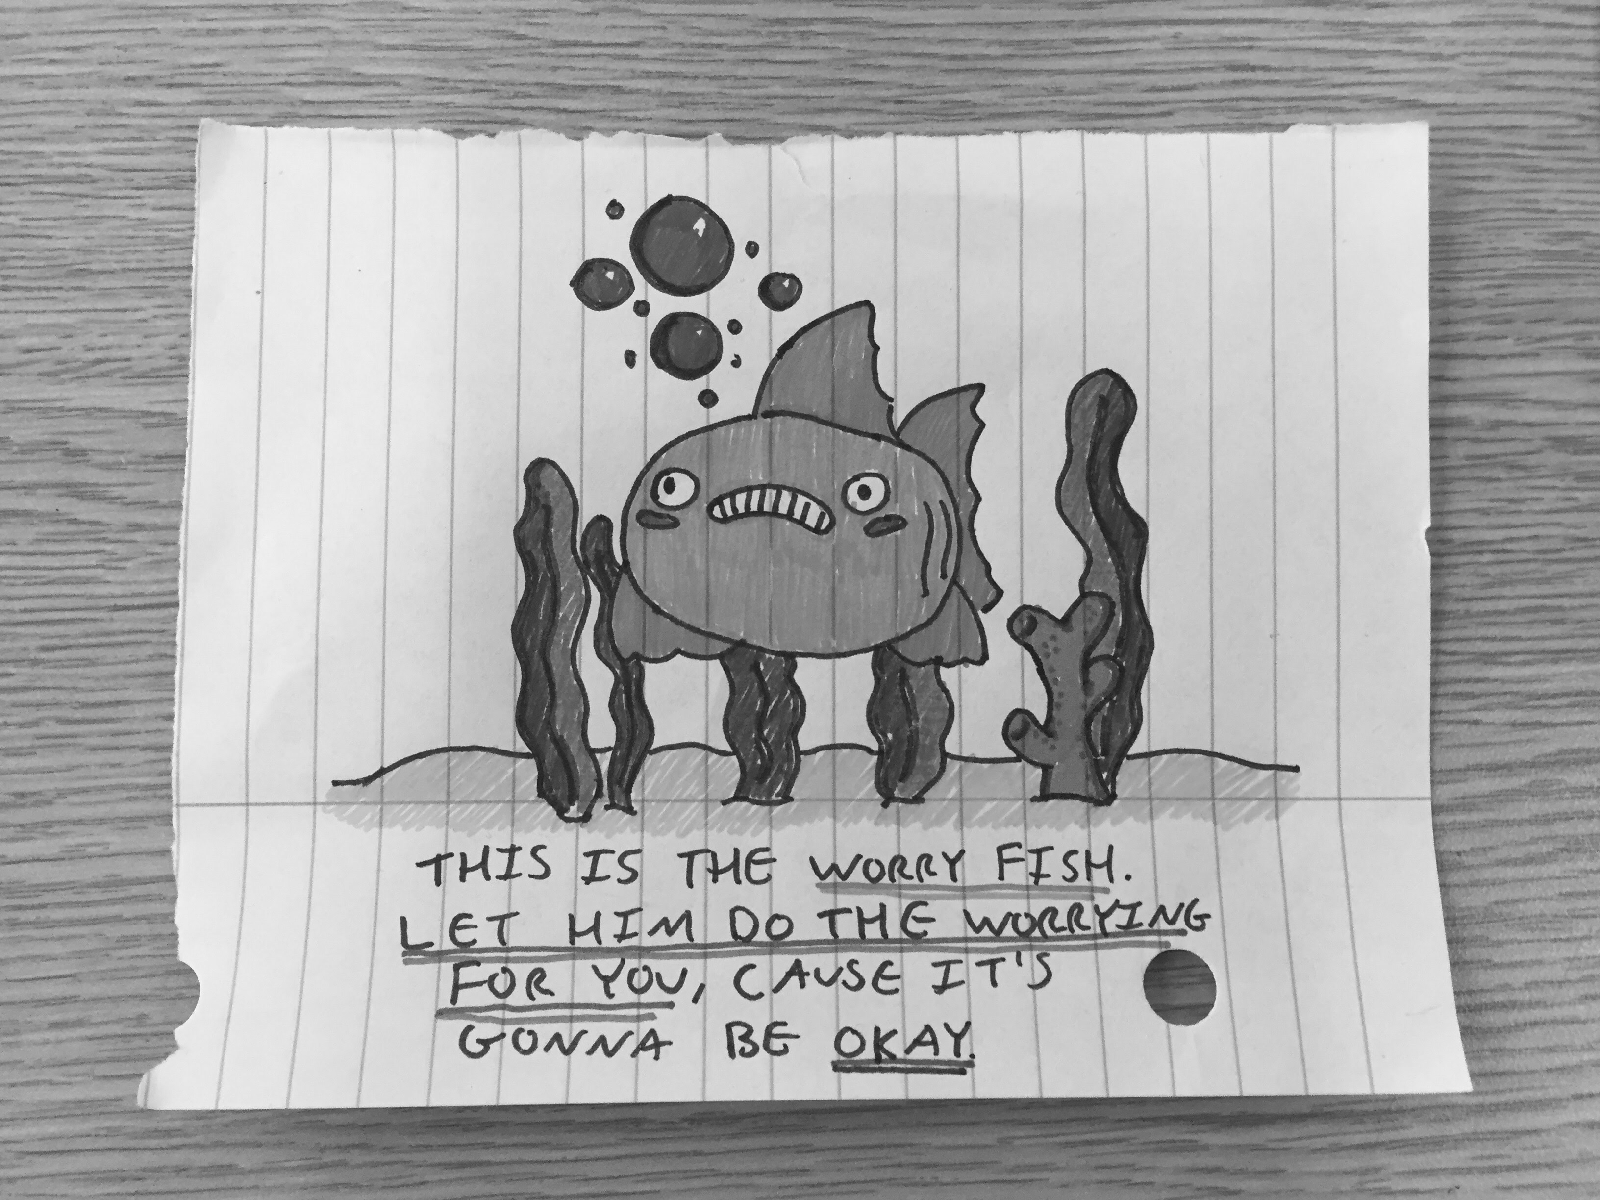 THIS IS THE WORRY FISH.
LET HIM DO THE WORRYING
FOR YOU, CAUSE IT'S
GONNA BE OKAY.